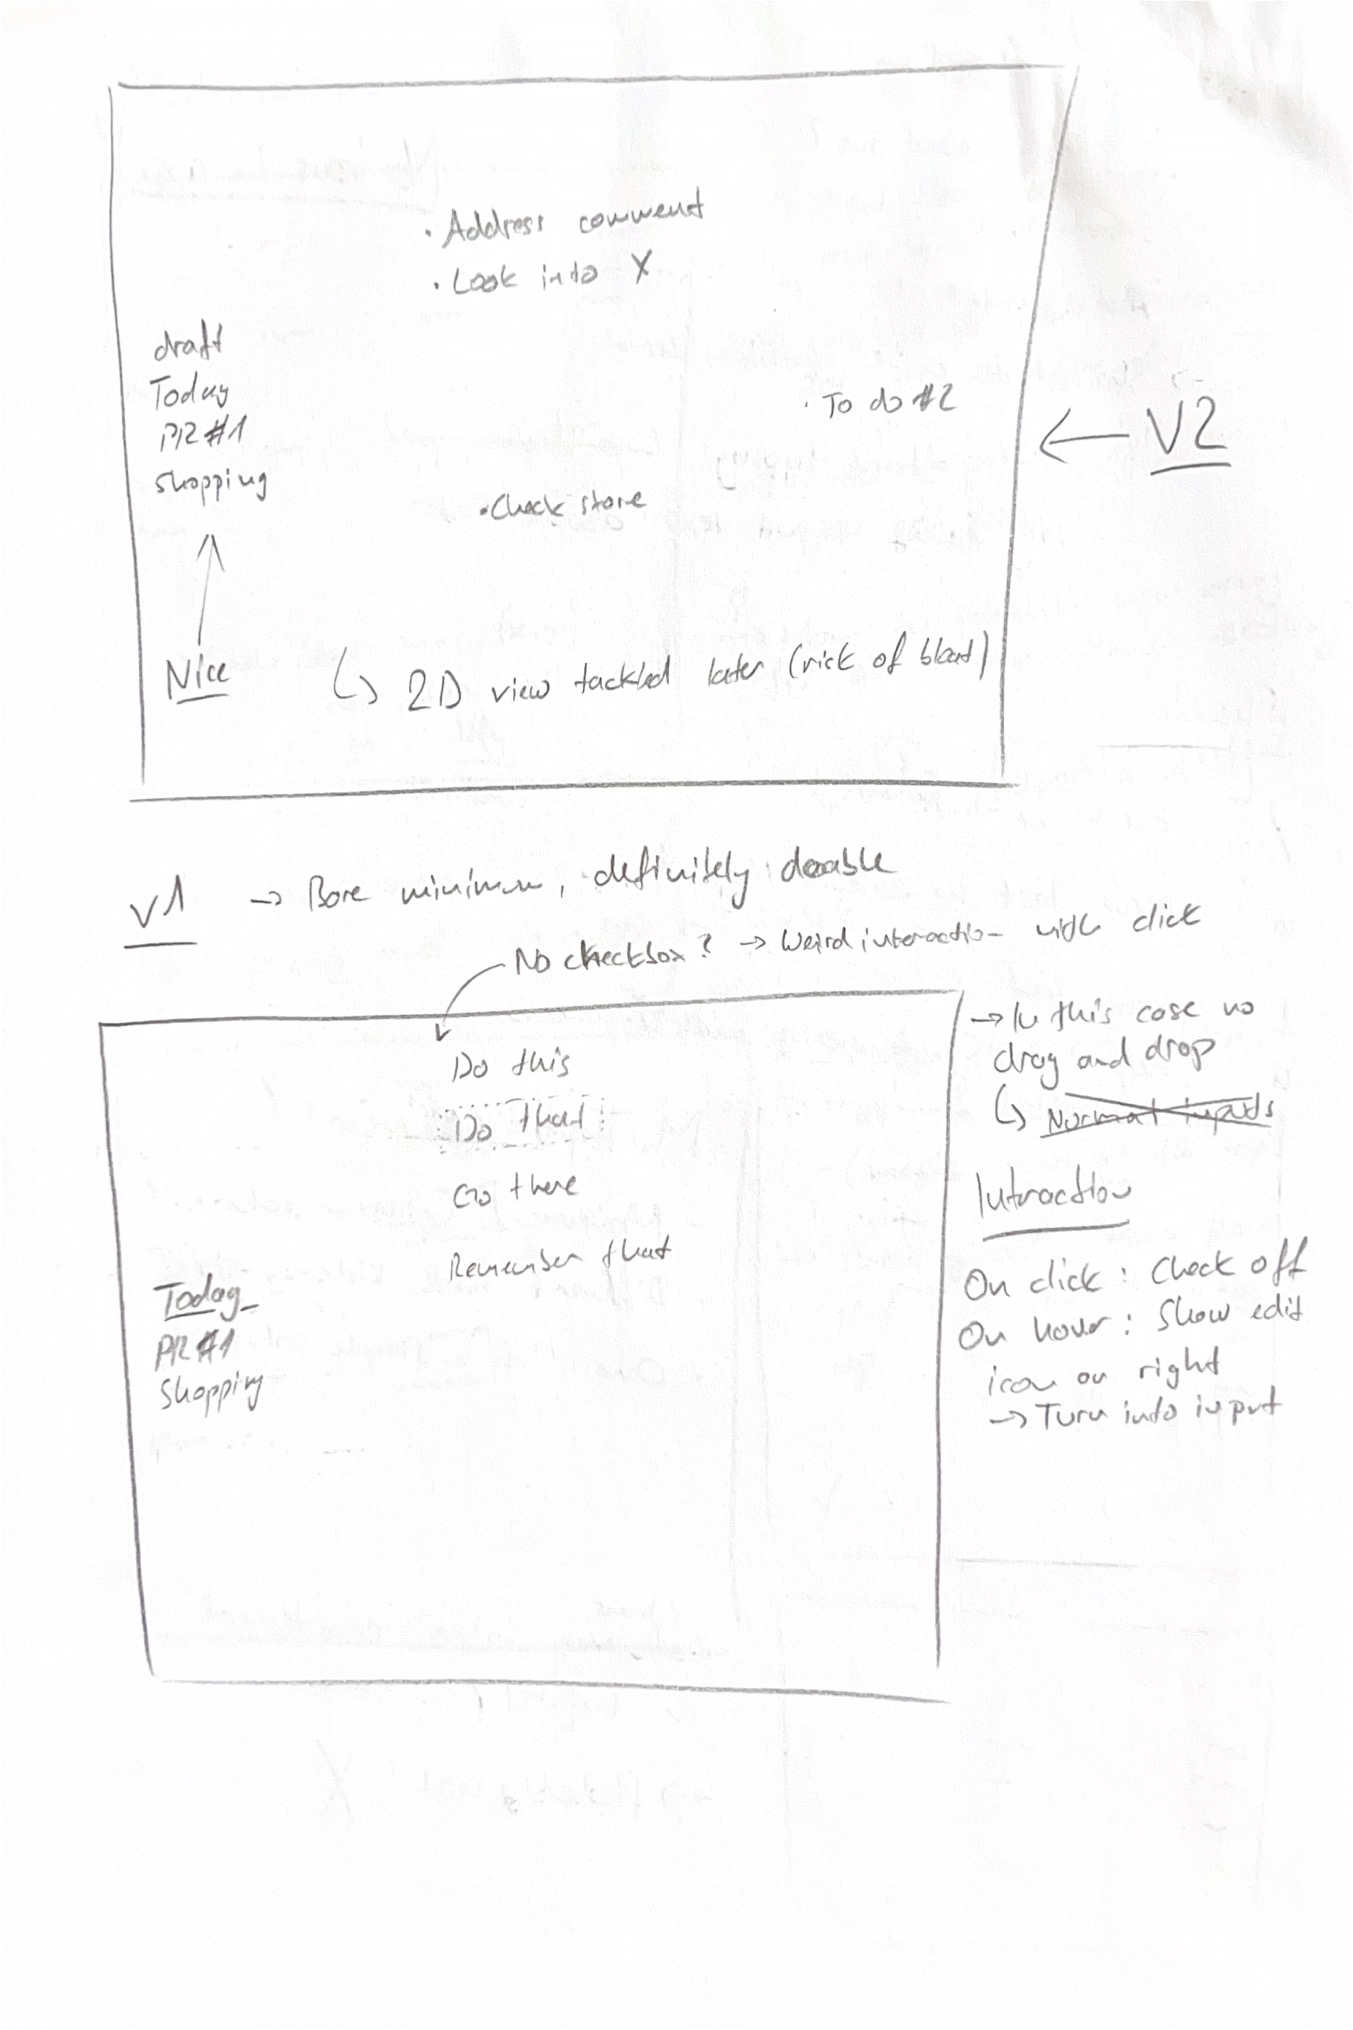 · Address comment
· Look into X
draft
Today
PR #1
shopping
· To do #2
← V2
· Check store
Nice
↳ 2D view tackled later (risk of bloat)
V1 → Bare minimum, definitely doable
No checkbox? → Weird interaction with click
Do this
Do that
Go there
Remember that
Today
PR #1
Shopping
→ In this case no
drag and drop
↳ Normal inputs
Interaction
On click: Check off
On hover: Show edit
icon on right
→ Turn into input